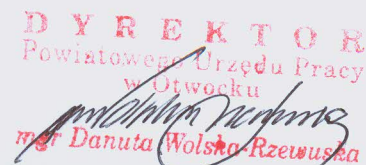 DYREKTOR
Powiatowego Urzędu Pracy
w Otwocku
mgr Danuta Wolska-Rzewuska